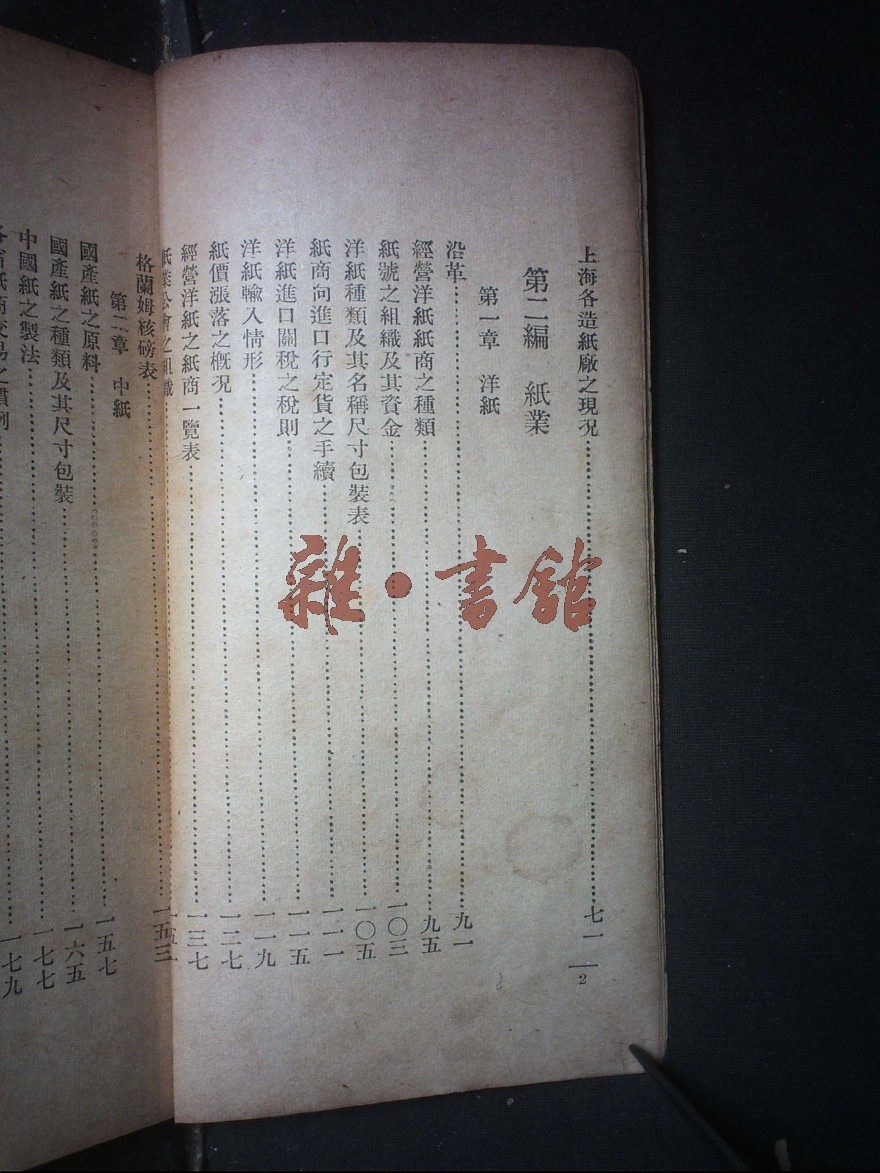 上海各造紙廠之現況……七一
第二編　紙業
第一章　洋紙
沿革……九一
經營洋紙紙商之種類……九五
紙號之組織及其資金……一〇三
洋紙種類及其名稱尺寸包裝表……一〇五
紙商向進口行定貨之手續……一一一
洋紙進口關稅之稅則……一一五
洋紙輸入情形……一一九
紙價漲落之概況……一二七
經營洋紙之紙商一覽表……一三七
紙業公會之組織……一五一
格蘭姆核磅表……一五三
第二章　中紙
國產紙之原料……一五七
國產紙之種類及其尺寸包裝……一六五
中國紙之製法……一七七
各省紙商交易之慣例……一七九
2
雜·書館